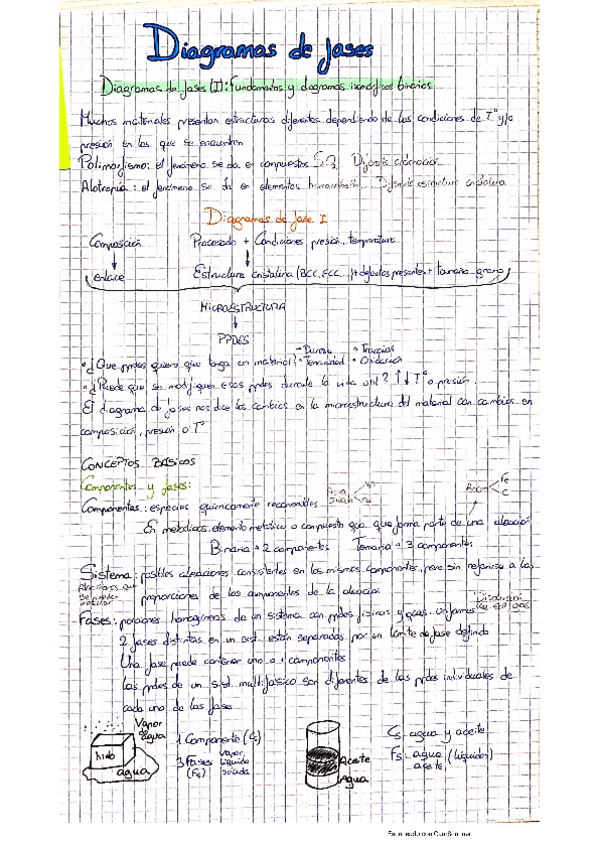 Diagramas de fases
Diagramas de fases (I): Fundamentos y diagramas isomórficos binarios
Muchos materiales presentan estructuras diferentes dependiendo de las condiciones de Tª y/o
presión en las que se encuentren
Polimorfismo: el fenómeno se da en compuestos Diferente
Alotropía: el fenómeno se da en elementos Diferente estructura cristalina
Diagramas de fase I
Composición Procesado + Condiciones presión, temperatura
enlace Estructura cristalina (BCC, FCC...) + defectos presentes + tamaño grano
MICROESTRUCTURA
PPDES
- Dureza • Tracción
• ¿Que ppdes quiero que tenga un material? • Tenacidad • Oxidación
• ¿Puede que se modifiquen esas ppdes durante la vida útil? ↑↓ Tª o presión
El diagrama de fases nos dice los cambios en la microestructura del material con cambios en
composición, presión o Tª
CONCEPTOS BÁSICOS
Componentes y fases:
Componentes: especies químicamente reconocibles
Fe
C
En metálicos: elemento metálico o compuesto que forma parte de una aleación
Binaria → 2 componentes Ternaria → 3 componentes
Sistema: posibles aleaciones consistentes en los mismos componentes, pero sin referirse a las
proporciones de los componentes de la aleación
Fases: porciones homogéneas de un sistema con ppdes físicas y qcas. uniformes
2 fases distintas en un sist. están separadas por un límite de fase definido
Una fase puede contener uno o + componentes
las ppdes de un sist. multifásico son diferentes de las ppdes individuales de
cada una de las fases
Vapor
agua
hielo
agua
1 Componente (C₁)
3 Fases
(F₃)
vapor,
líquido
sólido
Aceite
Agua
C₂: agua y aceite
F₂: agua (líquidos)
aceite